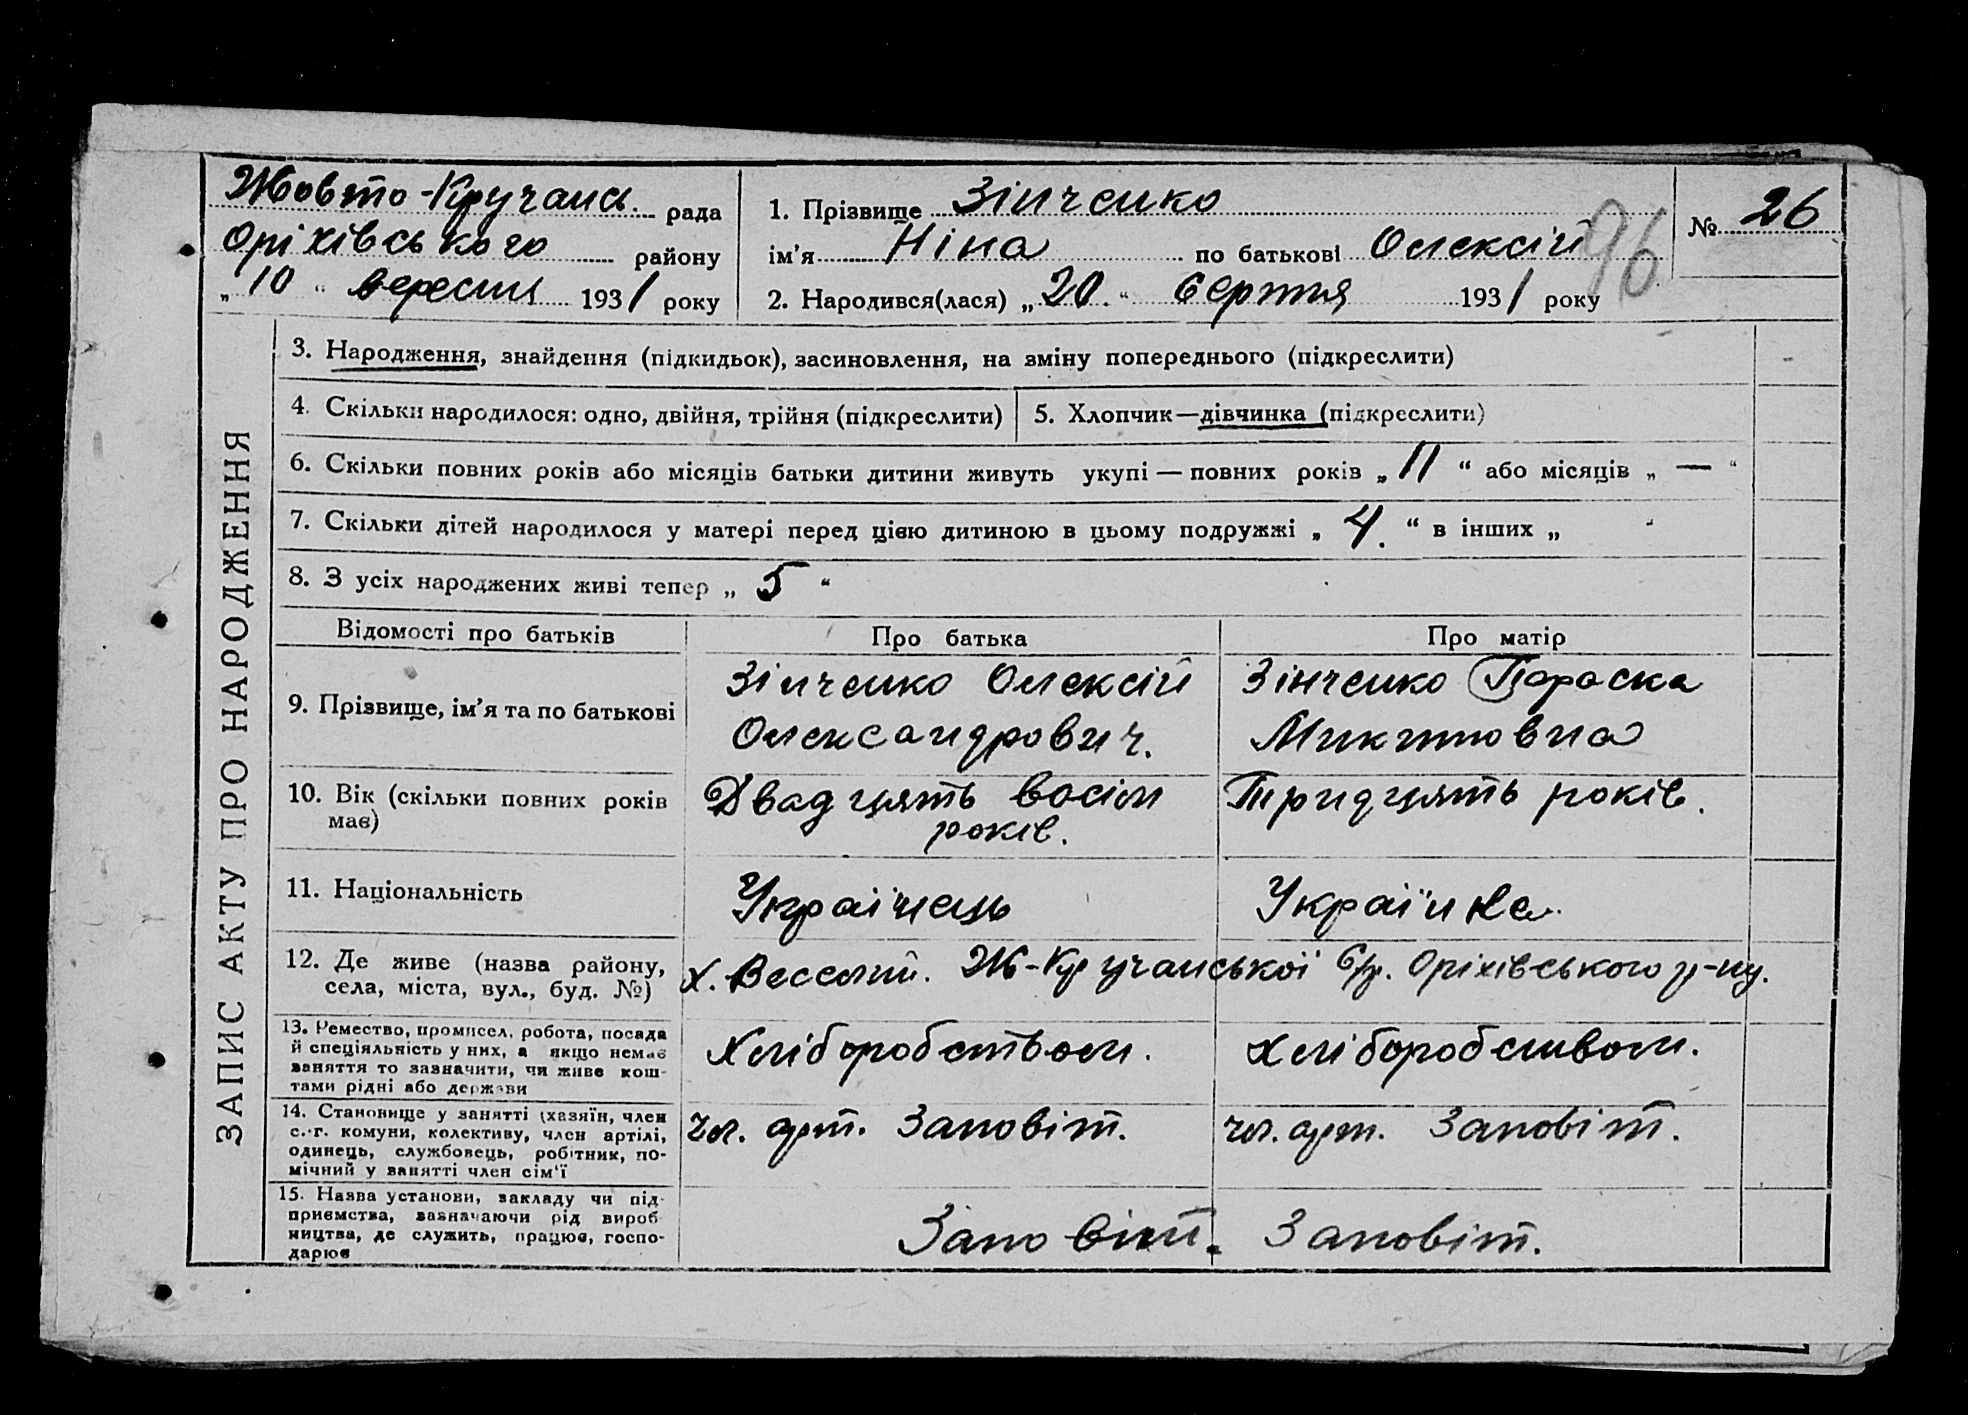 Жовто-Кручансь. рада
Оріхівського району
„ 10 “ вересня 1931 року
1. Прізвище Зінченко
ім’я Ніна по батькові Олексій
2. Народився(лася) „ 20. “ Серпня 1931 року
№ 26
96
ЗАПИС АКТУ ПРО НАРОДЖЕННЯ
3. Народження, знайдення (підкидьок), засиновлення, на зміну попереднього (підкреслити)
4. Скільки народилося: одно, двійня, трійня (підкреслити)
5. Хлопчик—дівчинка (підкреслити)
6. Скільки повних років або місяців батьки дитини живуть укупі — повних років „ 11 “ або місяців „ — “
7. Скільки дітей народилося у матері перед цією дитиною в цьому подружжі „ 4. “ в інших „ “
8. З усіх народжених живі тепер „ 5 “
Відомості про батьків Про батька Про матір
9. Прізвище, ім’я та по батькові
Зінченко Олексій
Олександрович.
Зінченко Параска
Микитовна
10. Вік (скільки повних років
має)
Двадцять восім
років.
Тридцять років.
11. Національність
Українець
Українка.
12. Де живе (назва району,
села, міста, вул., буд. №)
х. Веселий. Ж-Кручанської С/р. Оріхівського р-ну.
13. Ремество, промисел, робота, посада
й спеціяльність у них, а якщо немає
заняття то зазначити, чи живе кош-
тами рідні або держави
Хліборобством.
Хліборобством.
14. Становище у занятті (хазяїн, член
с.-г. комуни, колективу, член артілі,
одинець, службовець, робітник, по-
мічний у занятті член сім‘ї
чл. арт. Заповіт.
чл. арт. Заповіт.
15. Назва установи, закладу чи під-
приємства, зазначаючи рід вироб-
ництва, де служить, працює, госпо-
дарює
Заповіт.
Заповіт.